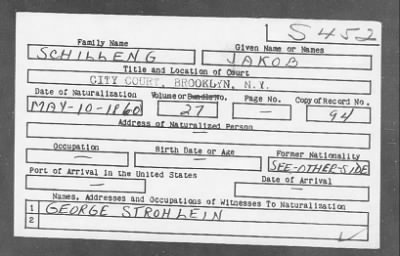 S452
Family Name Given Name or Names
SCHILLENG JAKOB
Title and Location of Court
CITY COURT, BROOKLYN, N.Y.
Date of Naturalization Volume or Bundle No. Page No. Copy of Record No.
MAY-10-1860 27 — 94
Address of Naturalized Person
—
Occupation Birth Date or Age Former Nationality
— — SEE-OTHER-SIDE
Port of Arrival in the United States Date of Arrival
— —
Names, Addresses and Occupations of Witnesses To Naturalization
1 GEORGE STROHLEIN
2